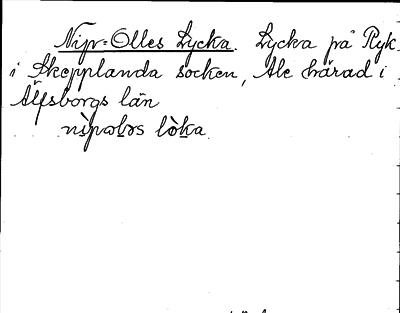 Nipr-Olles Lycka. Lycka på Ryk
i Skepplanda socken, Ale härad i
Älfsborgs län